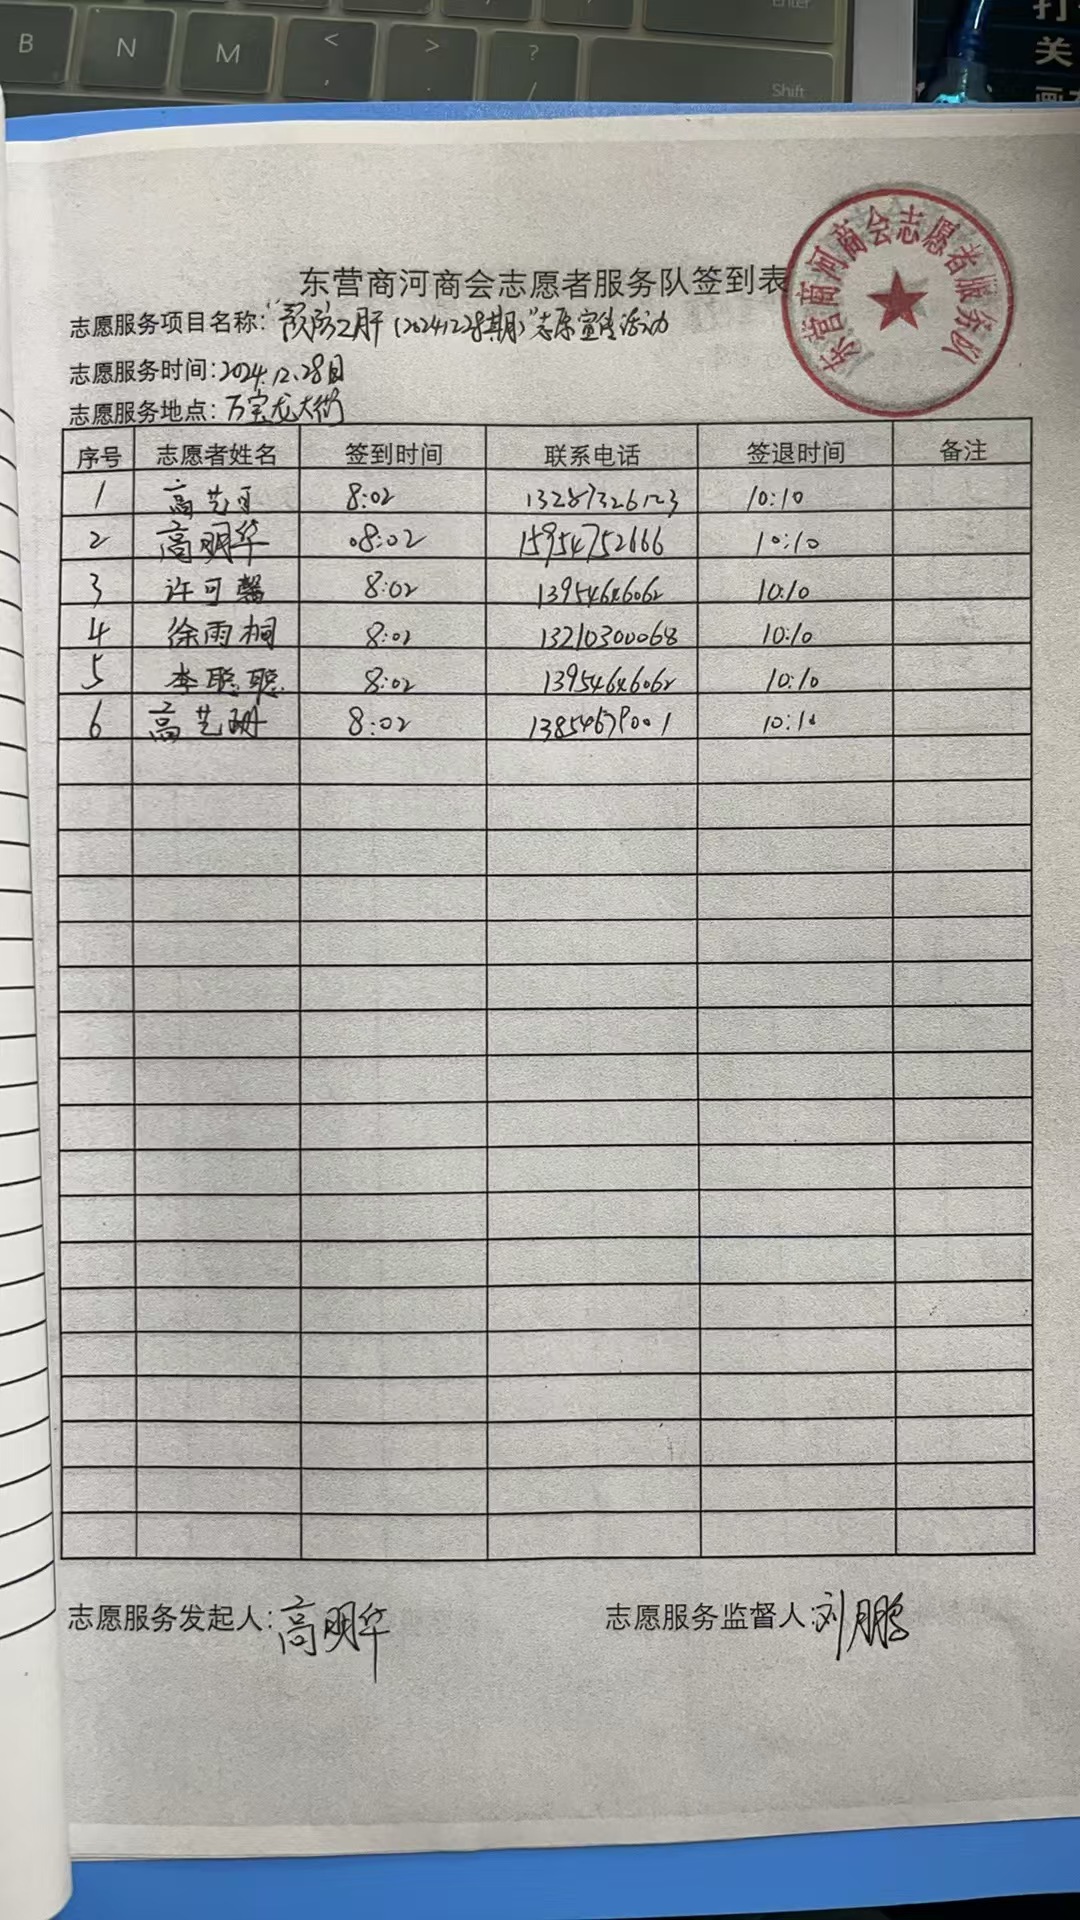 B N M < , > . ? / Enter Shift
打
关
东营商河商会志愿者服务队
东营商河商会志愿者服务队签到表
志愿服务项目名称:“预防乙肝(20241228期)”志愿宣传活动
志愿服务时间:2024.12.28日
志愿服务地点:万宝龙大街
序号 志愿者姓名 签到时间 联系电话 签退时间 备注
1 高艺可 8:02 13287326123 10:10
2 高明华 08:02 15954752666 10:10
3 许可馨 8:02 13954646062 10:10
4 徐雨桐 8:02 13210300068 10:10
5 李聪聪 8:02 13954646062 10:10
6 高艺珊 8:02 13854679001 10:10
志愿服务发起人:高明华 志愿服务监督人:刘鹏